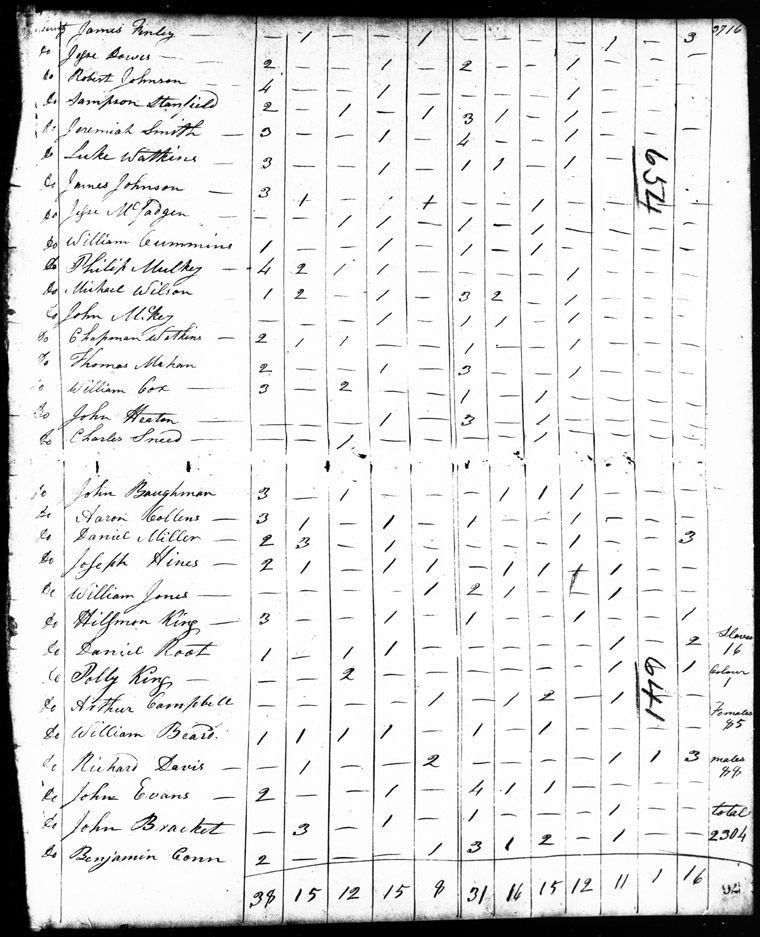 James Finley — — 1 — — 1 — — — — 1 — — 3 3716
Do Jesse Dowis 2 — — 1 — 2 — — 1 — — —
Do Robert Johnson 4 — — 1 — — — — 1 — — —
Do Sampson Stanfield 2 — 1 — 1 3 1 — 1 — — —
Do Jeremiah Smith 3 — — 1 — 4 — — 1 — — —
Do Luke Watkins 3 — — 1 — 1 1 — 1 — — —
654
Do James Johnson 3 1 — — 1 — — 1 — — — —
Do Jesse McFadgen — — 1 1 — 1 — 1 — — — —
Do William Cummins 1 — — 1 — 1 — 1 — — — —
Do Philip Mulkey 4 2 1 1 — — — — 1 — — —
Do Michael Wilson 1 2 — 1 — 3 2 — 1 — — —
Do John McKey — — — 1 — 1 1 — 1 — — —
Do Chapman Watkins 2 1 1 — — 1 — — 1 — — —
Do Thomas Mahan 2 — — 1 — 3 — — 1 — — —
Do William Cox 3 — 2 — — 1 — 1 — — — —
Do John Heaton — — — 1 — 3 — 1 — — — —
Do Charles Sneed — — 1 — — — — 1 — — — —
Do John Baughman 3 — 1 — — — 1 1 1 — — —
Do Aaron Collens 3 1 — 1 — 1 — — 1 — — —
Do Daniel Miller 2 3 — 1 — — — — 1 — — 3
Do Joseph Hines 2 1 — 1 1 — 1 1 1 1 — —
Do William Jones — — — — 1 2 1 — — 1 — —
Do Hilsmon King 3 — — 1 — 1 — — 1 — — 1
Do Daniel Root 1 — 1 1 — — — — — 1 — 2
Slaves 16
Do Polly King — — 2 — — — — — — 1 — 1
641
Colour 1
Do Arthur Campbell — — — — 1 — 1 2 — 1 — —
Females 85
Do William Beard 1 1 1 1 — 1 — 1 — — — —
Do Richard Davis — 1 — — 2 — — — — 1 1 3
males 88
Do John Evans 2 — — 1 — 4 1 1 — — — —
Do John Bracket — 3 — 1 — 1 — — — 1 — —
total 2304
Do Benjamin Conn 2 — — — 1 3 1 2 — 1 — —
38 15 12 15 8 31 16 15 12 11 1 16